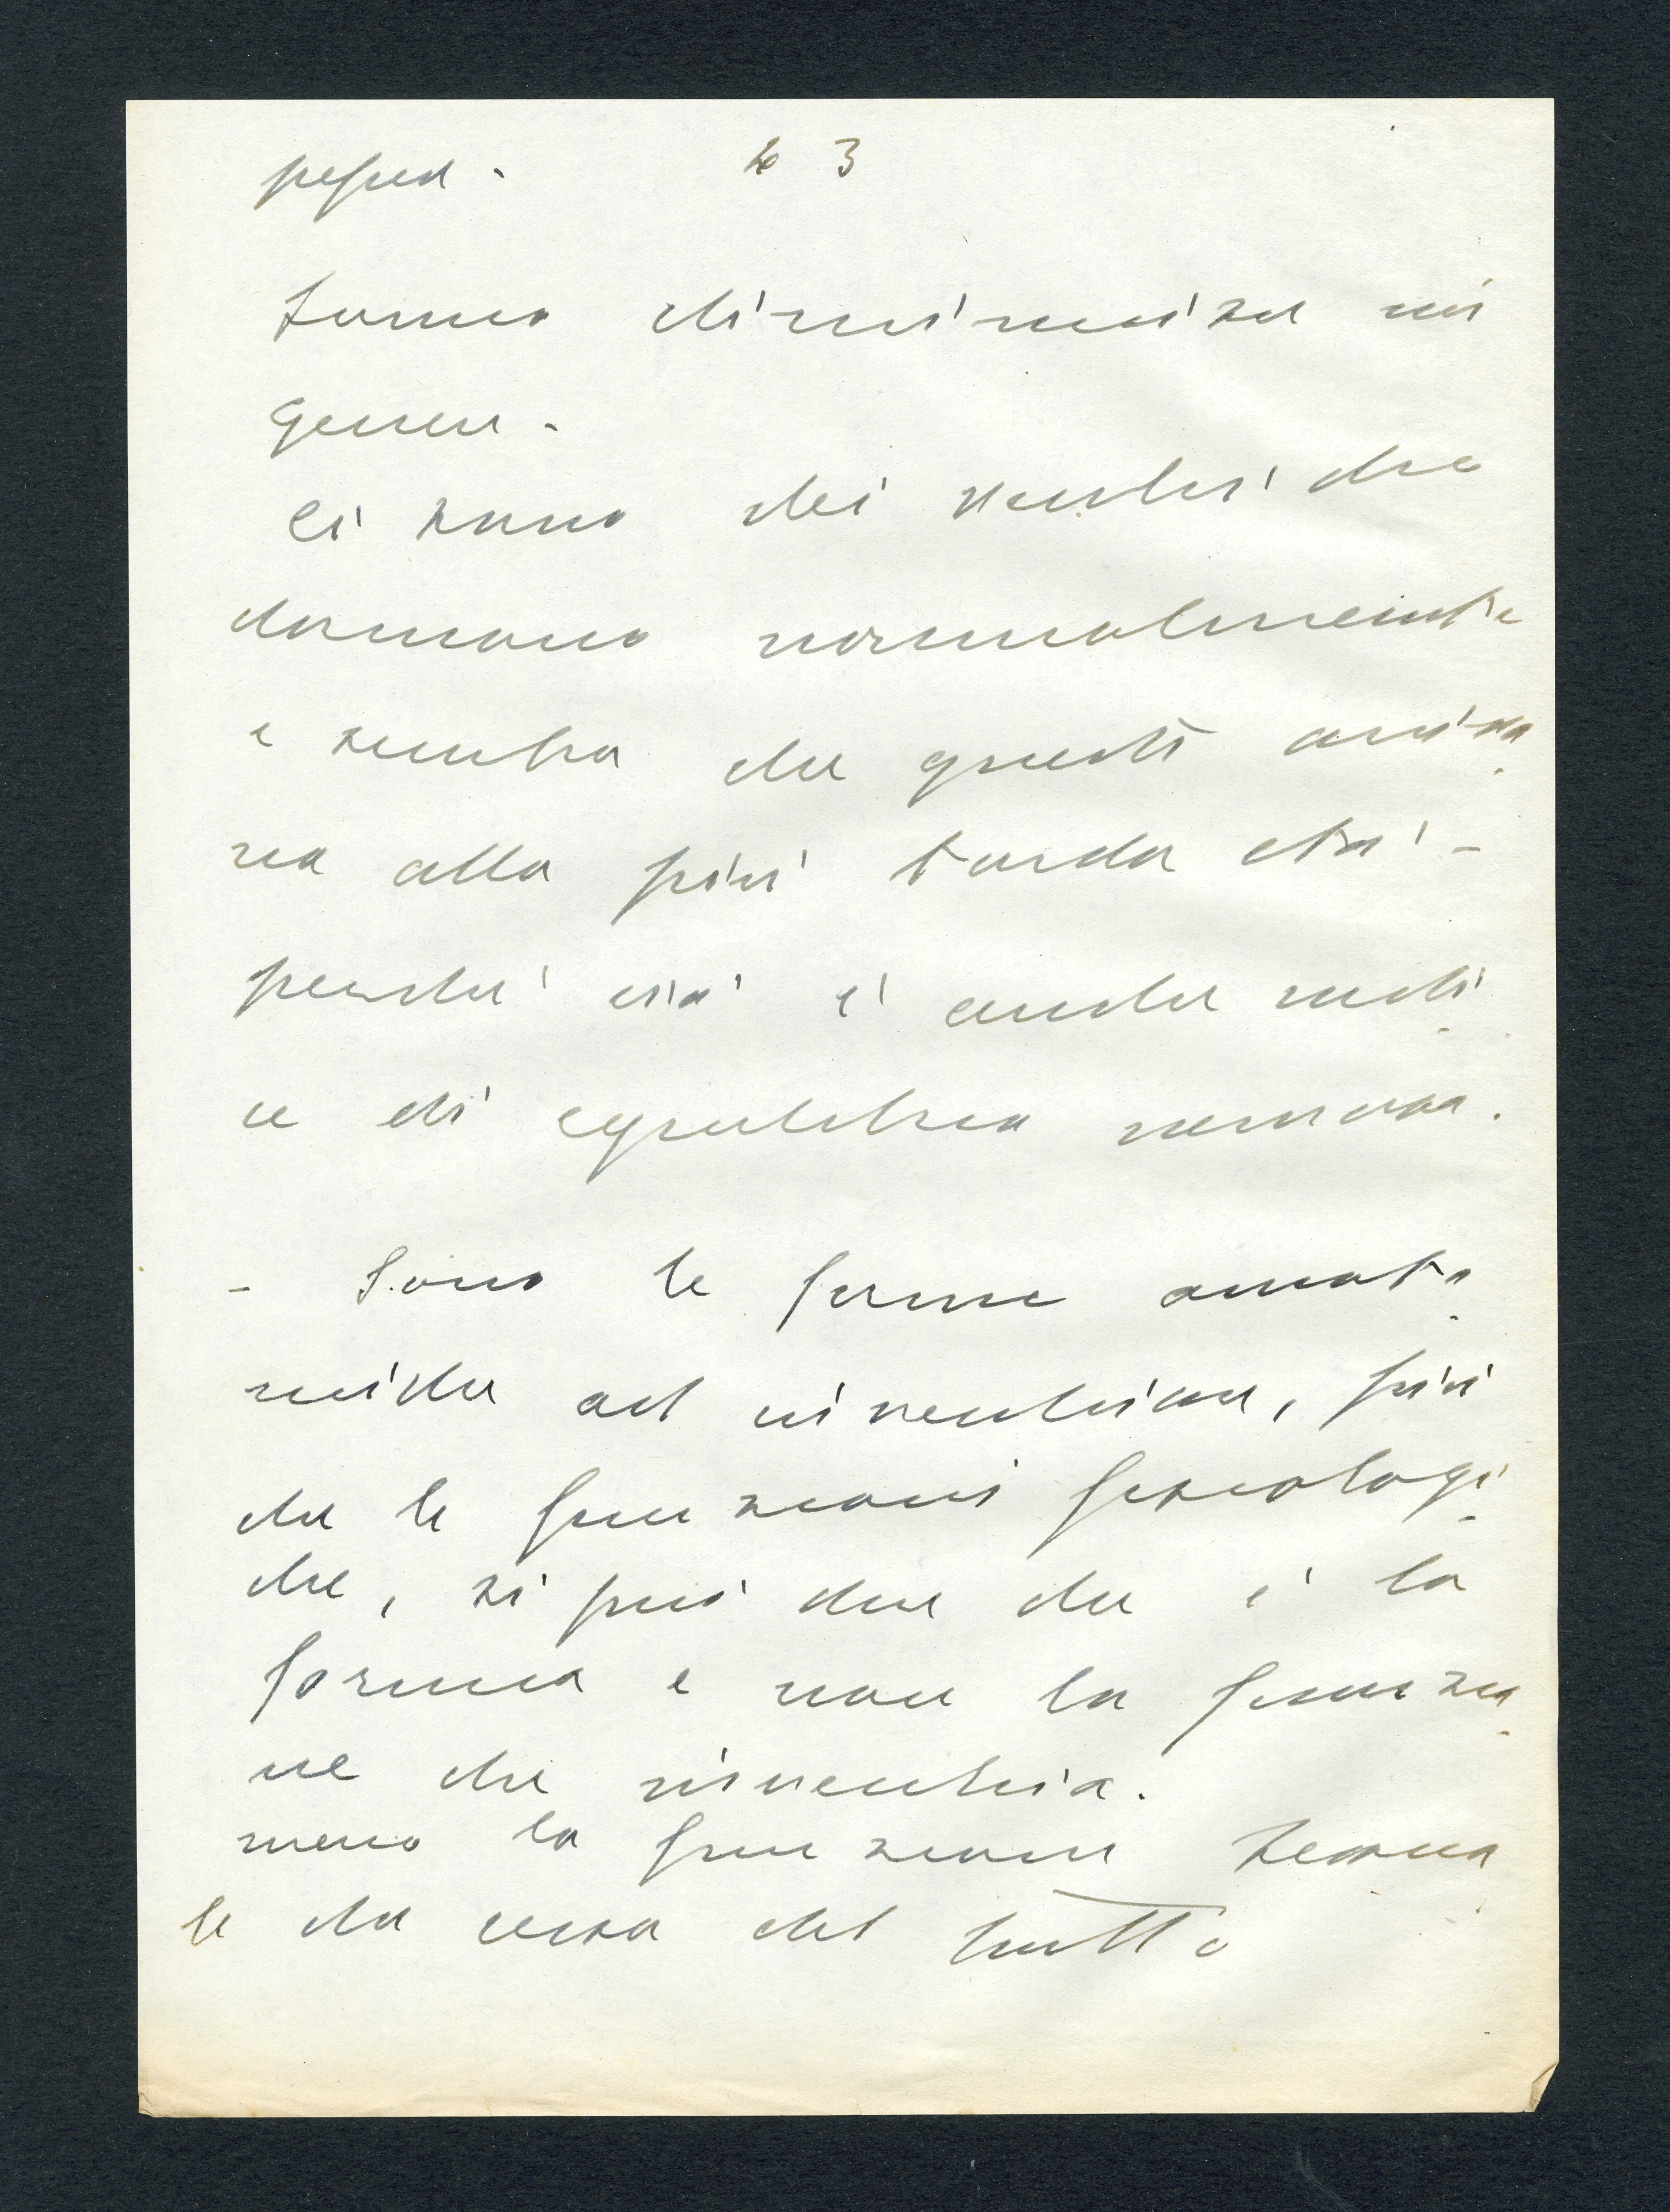 23
Sonno diminuisce in
genere.
Ci sono dei vecchi che
dormono normalmente
e sembra che questi arriva
no alla più tarda età -
perché ciò è anche indi
ce di equilibrio nervoso.
- Sono le forme anato
miche ad invecchiare, più
che le funzioni fisiologi
che, si può dire che è la
forma e non la funzio
ne che invecchia.
meno la funzione sessua
le che cessa del tutto